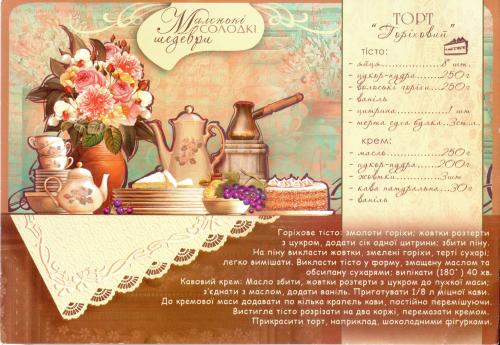 Маленькі
СОЛОДКІ
шедеври
ТОРТ
"Горіховий"
тісто:
- яйця...............8 шт.
- цукор-пудра........250г
- волоські горіхи....250г
- ваніль
- цитрина............1 шт
- терта суха булка...3ст.л.
крем:
- масло..............250г
- цукор-пудра........200г
- жовтки.............3шт
- кава натуральна....30г
- ваніль
Горіхове тісто: змолоти горіхи; жовтки розтерти
з цукром, додати сік одної цитрини; збити піну.
На піну викласти жовтки, змелені горіхи, терті сухарі;
легко вимішати. Викласти тісто у форму, змащену маслом та
обсипану сухарями; випікати (180°) 40 хв.
Кавовий крем: Масло збити, жовтки розтерти з цукром до пухкої маси;
з'єднати з маслом, додати ваніль. Приготувати 1/8 л міцної кави.
До кремової маси додавати по кілька крапель кави, постійно перемішуючи.
Вистигле тісто розрізати на два коржі, перемазати кремом.
Прикрасити торт, наприклад, шоколадними фігурками.